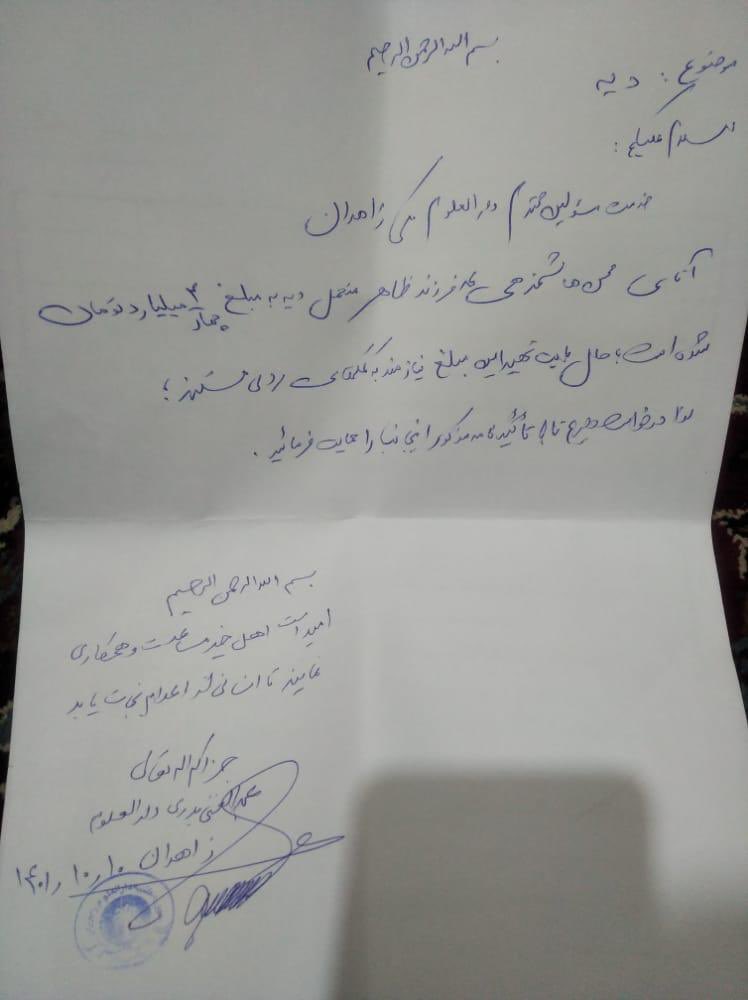 بسم الله الرحمن الرحیم
موضوع: دیه
السلام علیکم:
خدمت مسئولین محترم دارالعلوم مکی زاهدان
آقای شه‌بخش فرزند ظاهر متحمل دیه به مبلغ ۴ میلیارد تومان
چهار
شده است؛ حال بابت تهیه این مبلغ نیازمند به کمکهای مردمی هستند؛
لذا درخواست داریم تا با تأئید نامه مذکور اینجانب را حمایت فرمائید.
بسم الله الرحمن الرحیم
امید است اهل خیر مساعدت و همکاری
نمایند تا انسانی از اعدام نجات یابد
جزاکم الله تعالی
عبدالغنی بدری دارالعلوم
زاهدان ۱۴۰۱/۱۰/۱۰